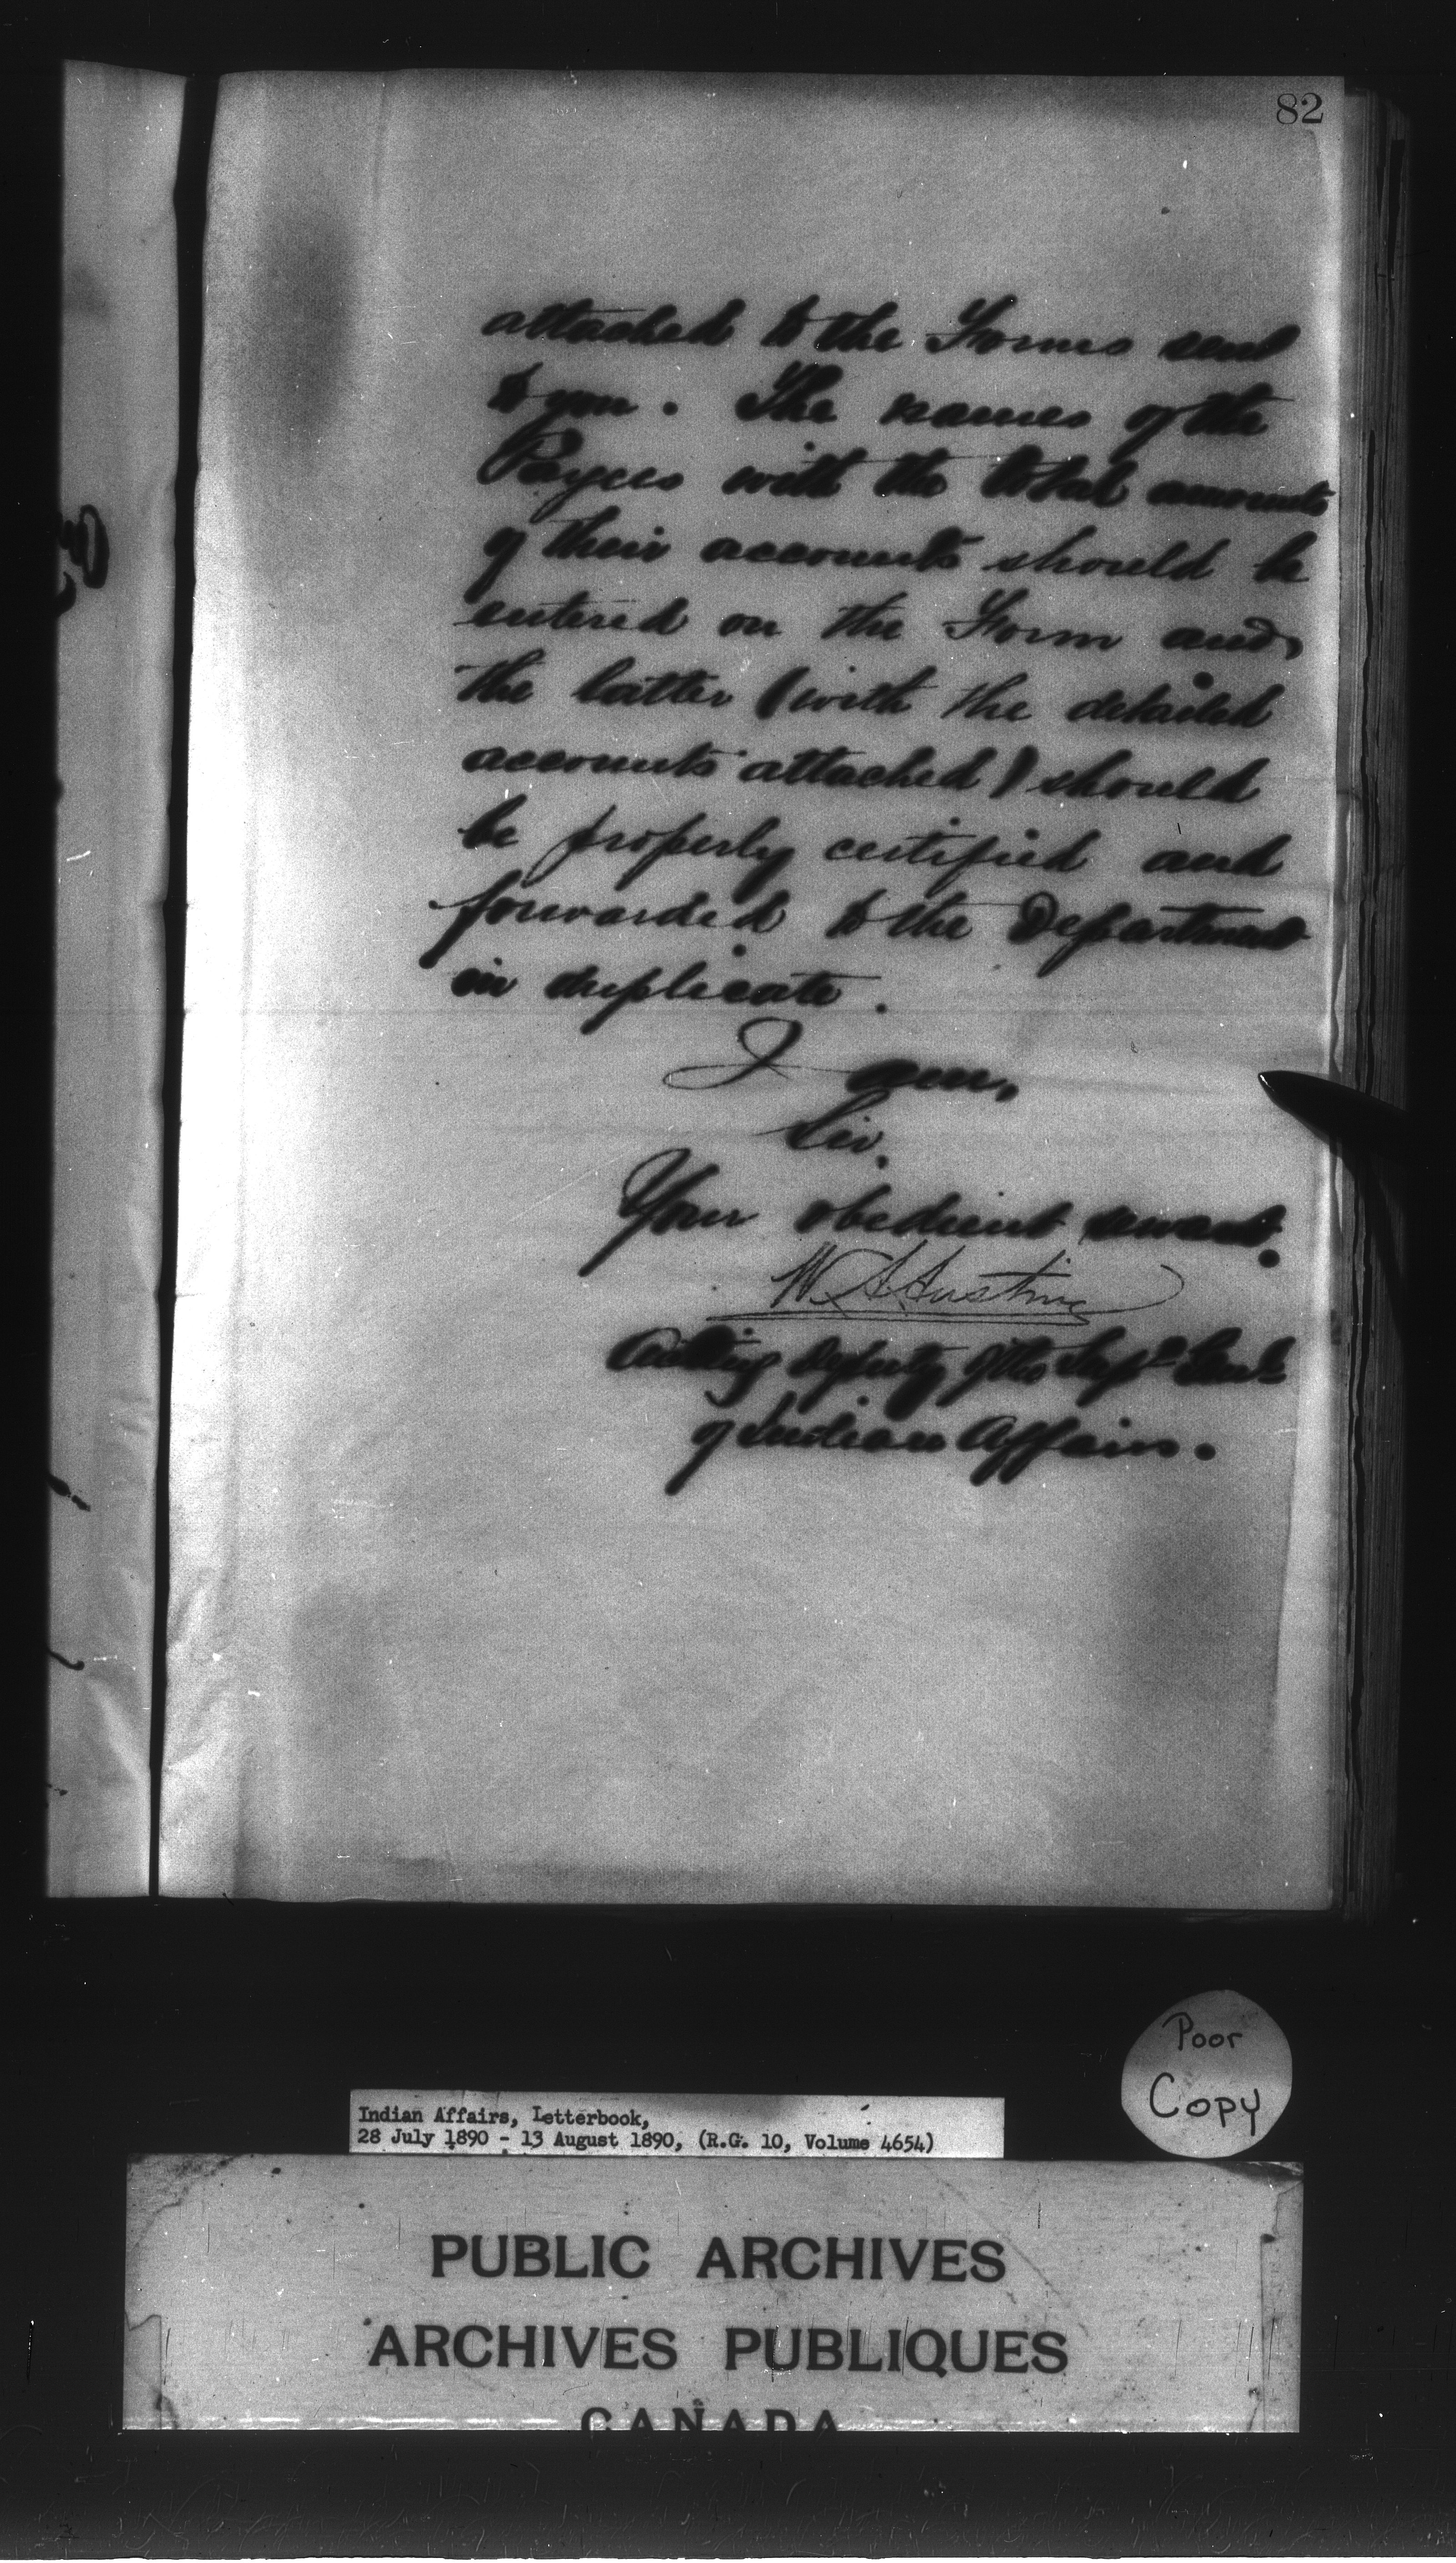 82
attached to the Forms sent
to you. The names of the
Payees with the total amounts
of their accounts should be
entered on the Form and
the latter (with the detailed
accounts attached) should
be properly certified and
forwarded to the Department
in duplicate.
I am,
Sir,
Your obedient servant.
W A Austin
Acting Deputy of the Supt Genl
of Indian Affairs.
Poor
Copy
Indian Affairs, Letterbook,
28 July 1890 - 13 August 1890, (R.G. 10, Volume 4654)
PUBLIC ARCHIVES
ARCHIVES PUBLIQUES
CANADA